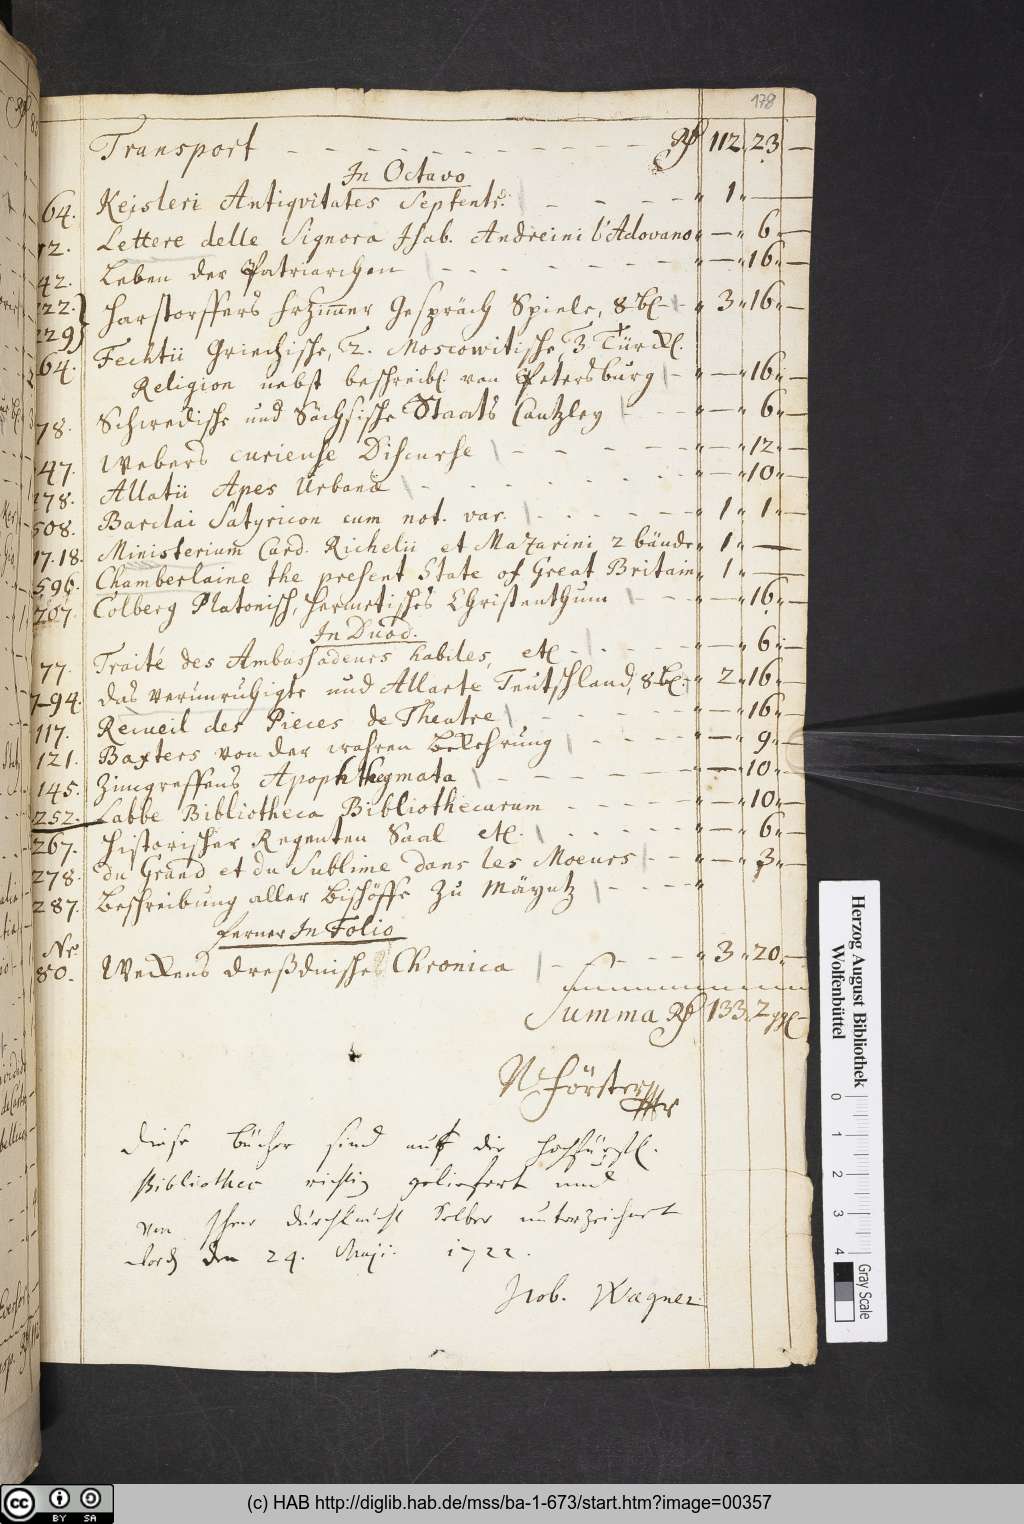 178
Transport - - - - - - - - - - - - Rthl 112 23 -
In Octavo
64. Keisleri Antiqvitates Septentr. - - - " 1 " -
12. Lettere delle Signora Isab. Andreini l'Adovano " - " 6 " -
42. Leben der Patriarchen - - - - " - " 16 " -
222. } Harstorffers frZimmer Gespräch Spiele, 8 bl. - " 3 " 16 " -
229 }
64. Fechtii Griechische, 2. Moscowitische, 3 Türck.
Religion nebst beschreib. von Petersburg - " - " 16 " -
78. Schwedische und Sächsische Staats Cantzley - - - " - " 6 " -
47. Webers curieuse Discurse - - - - " - " 12 " -
178. Allatii Apes Urbanæ - - - - " - " 10 " -
508. Barclai Satyricon cum not. var. - - - " 1 " 1 " -
17.18. Ministerium Card. Richelii et Mazarini 2 bände " 1 " -
596. Chamberlaine the present State of Great Britain " 1 " -
267. Colberg Platonisch, Hermetisches Christenthum - - " - " 16 " -
In Duod.
77. Traité des Ambassadeurs habiles, etc. - - - " - " 6 " -
7-94. das verunruhigte und Allarte Teutschland, 8 bl. " 2 " 16 " -
117. Recueil des Pieces de Theatre - - - " - " 16 " -
121. Baxters von der wahren Bekehrung - - - " - " 9 " -
145. Zincgreffens Apophthegmata - - - - " - " 10 " -
252. Labbe Bibliotheca Bibliothecarum - - - " - " 10 " -
267. Historischer Regenten Saal etc. - - - " - " 6 " -
278. du Grand et du Sublime dans les Moeurs - - " - " 3 " -
287. Beschreibung aller Bischöffe Zu Mäyntz - - - "
ferner In Folio
Nr.
80. Weckens Dreßdnische Chronica - - - " 3 " 20 " -
Summa Rthl 133. 2 ggl -
N. Förster
Diese bücher sind auf die Hochfürstl.
Bibliothec richtig geliefert und
von Ihro Durchlaucht Selber unterzeichnet
worden den 24. Maji. 1722.
Jacob. Wagner.
Herzog August Bibliothek
Wolfenbüttel
0 1 2 3 4
Gray Scale
cc BY SA
(c) HAB http://diglib.hab.de/mss/ba-1-673/start.htm?image=00357